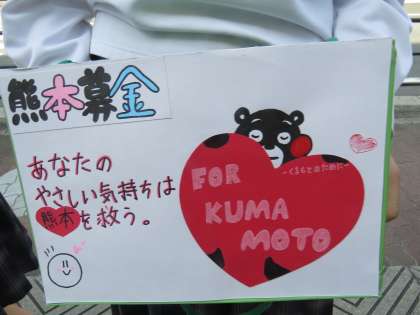 熊本募金
あなたの
やさしい気持ちは
熊本を救う。
FOR
~くまもとのために~
KUMA
MOTO